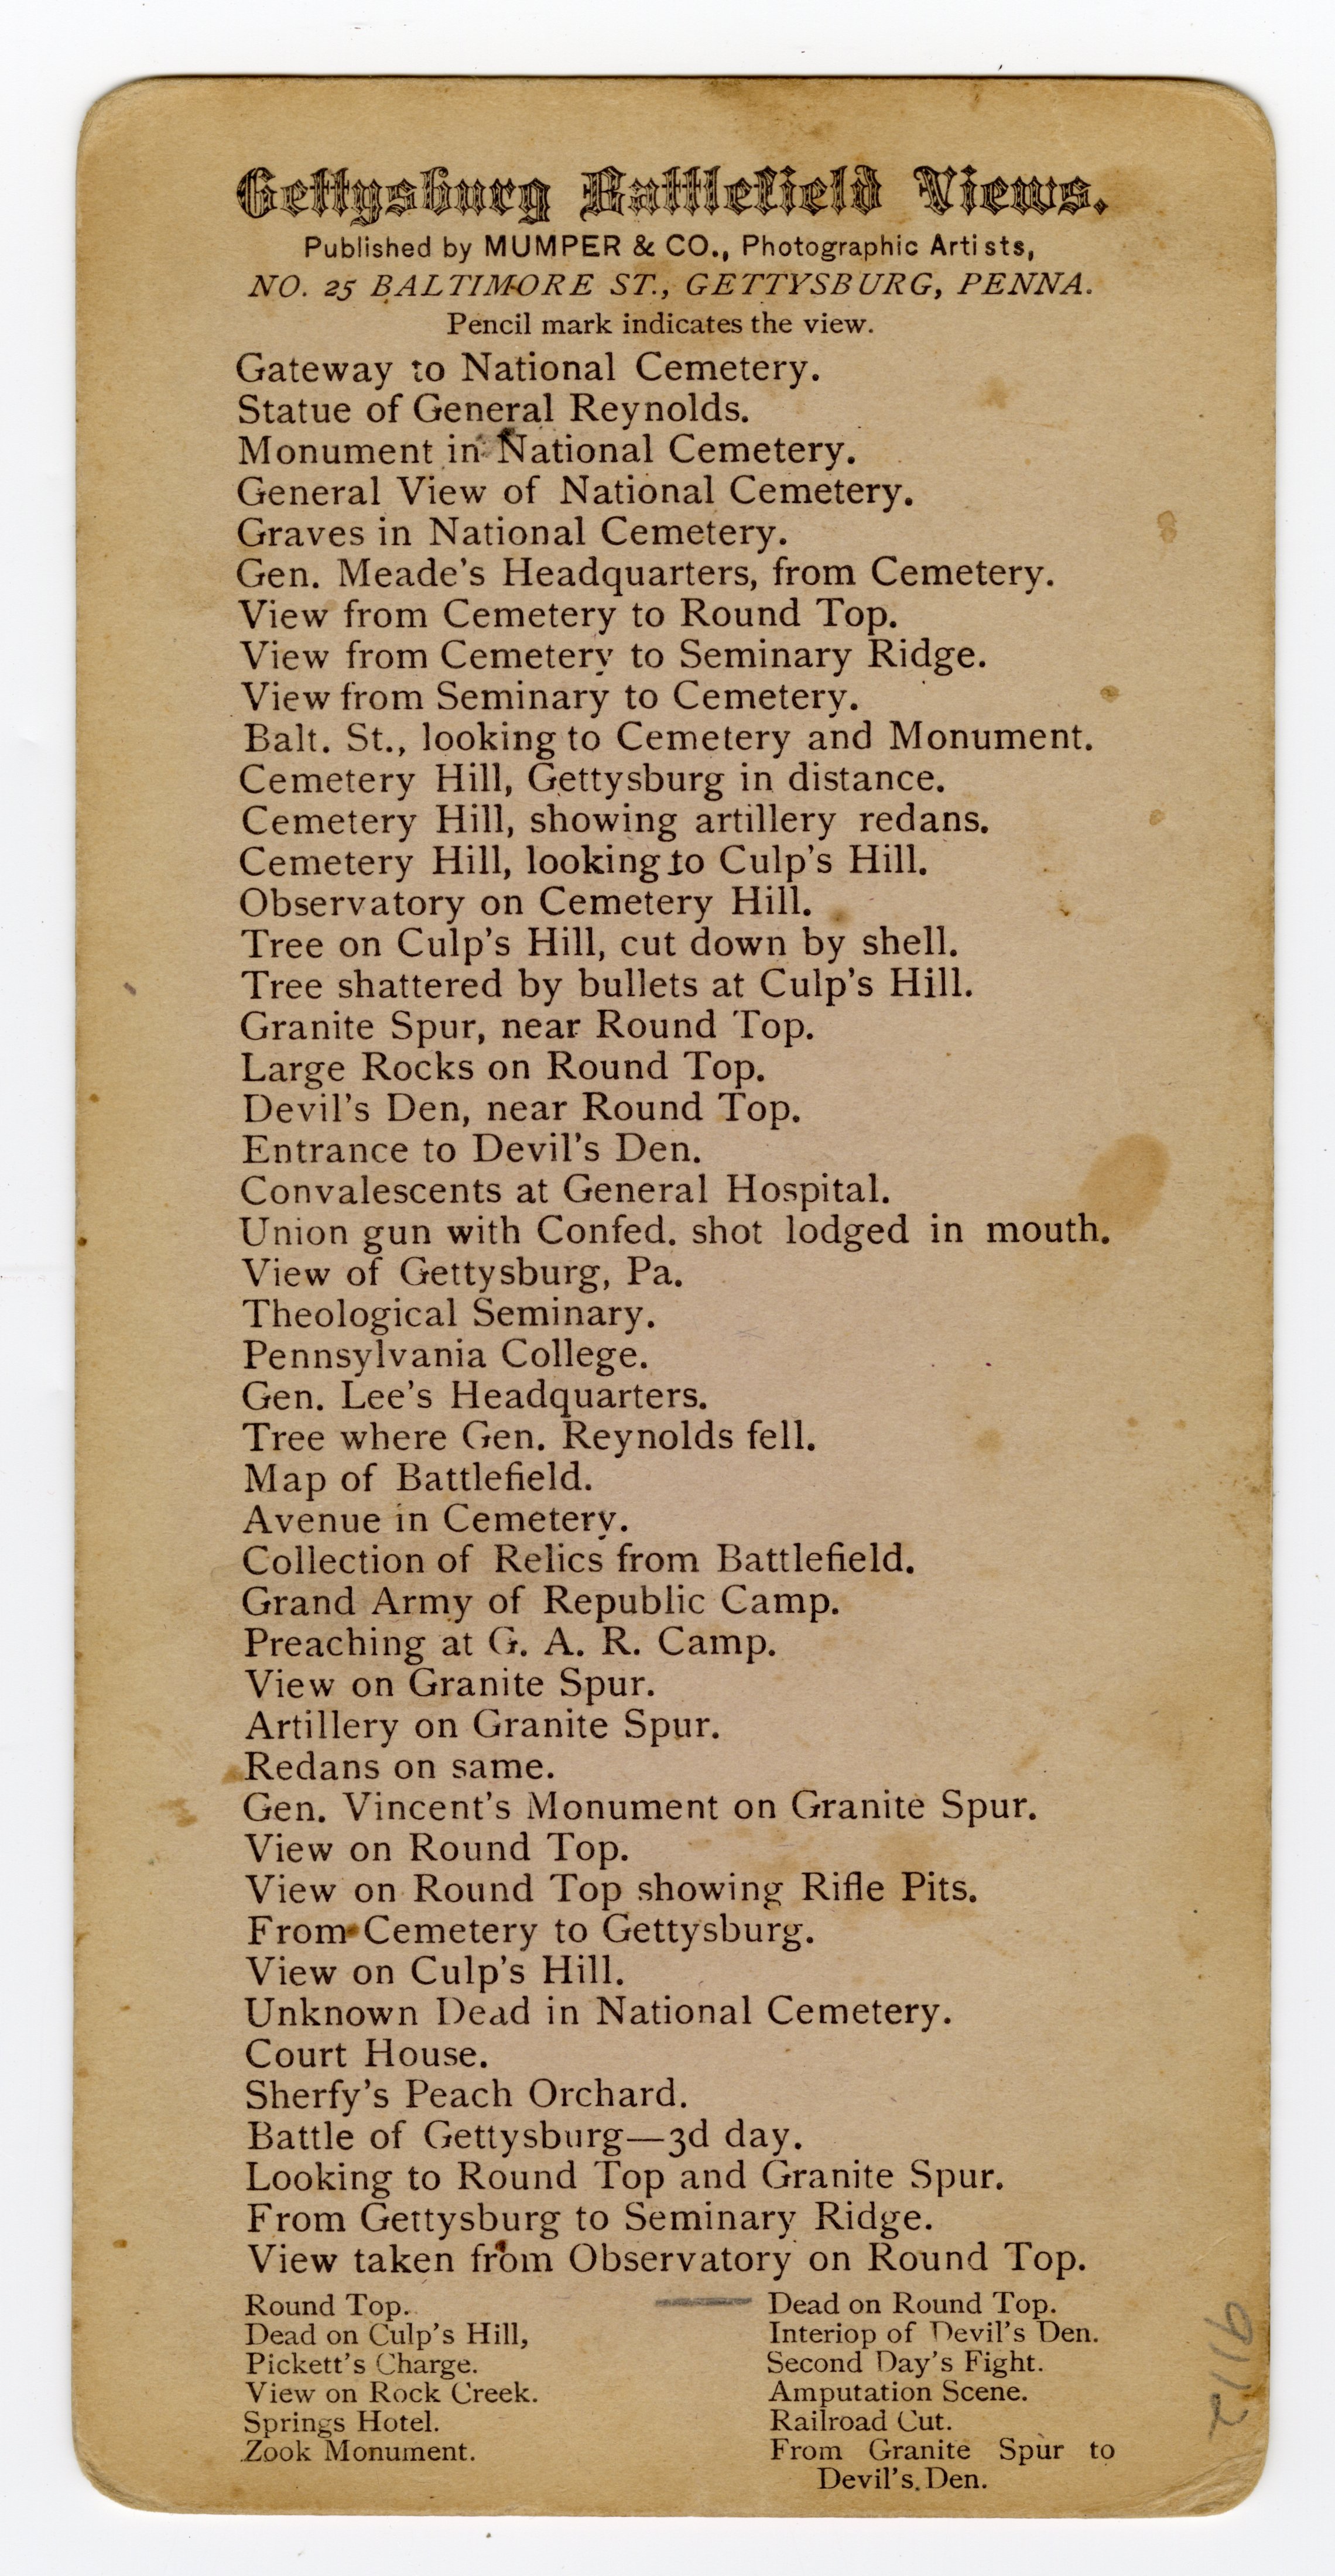 Gettysburg Battlefield Views.
Published by MUMPER & CO., Photographic Artists,
NO. 25 BALTIMORE ST., GETTYSBURG, PENNA.
Pencil mark indicates the view.
Gateway to National Cemetery.
Statue of General Reynolds.
Monument in National Cemetery.
General View of National Cemetery.
Graves in National Cemetery.
Gen. Meade's Headquarters, from Cemetery.
View from Cemetery to Round Top.
View from Cemetery to Seminary Ridge.
View from Seminary to Cemetery.
Balt. St., looking to Cemetery and Monument.
Cemetery Hill, Gettysburg in distance.
Cemetery Hill, showing artillery redans.
Cemetery Hill, looking to Culp's Hill.
Observatory on Cemetery Hill.
Tree on Culp's Hill, cut down by shell.
Tree shattered by bullets at Culp's Hill.
Granite Spur, near Round Top.
Large Rocks on Round Top.
Devil's Den, near Round Top.
Entrance to Devil's Den.
Convalescents at General Hospital.
Union gun with Confed. shot lodged in mouth.
View of Gettysburg, Pa.
Theological Seminary.
Pennsylvania College.
Gen. Lee's Headquarters.
Tree where Gen. Reynolds fell.
Map of Battlefield.
Avenue in Cemetery.
Collection of Relics from Battlefield.
Grand Army of Republic Camp.
Preaching at G. A. R. Camp.
View on Granite Spur.
Artillery on Granite Spur.
Redans on same.
Gen. Vincent's Monument on Granite Spur.
View on Round Top.
View on Round Top showing Rifle Pits.
From Cemetery to Gettysburg.
View on Culp's Hill.
Unknown Dead in National Cemetery.
Court House.
Sherfy's Peach Orchard.
Battle of Gettysburg—3d day.
Looking to Round Top and Granite Spur.
From Gettysburg to Seminary Ridge.
View taken from Observatory on Round Top.
Round Top.
Dead on Culp's Hill,
Pickett's Charge.
View on Rock Creek.
Springs Hotel.
Zook Monument.
Dead on Round Top.
Interiop of Devil's Den.
Second Day's Fight.
Amputation Scene.
Railroad Cut.
From Granite Spur to
Devil's Den.
9112